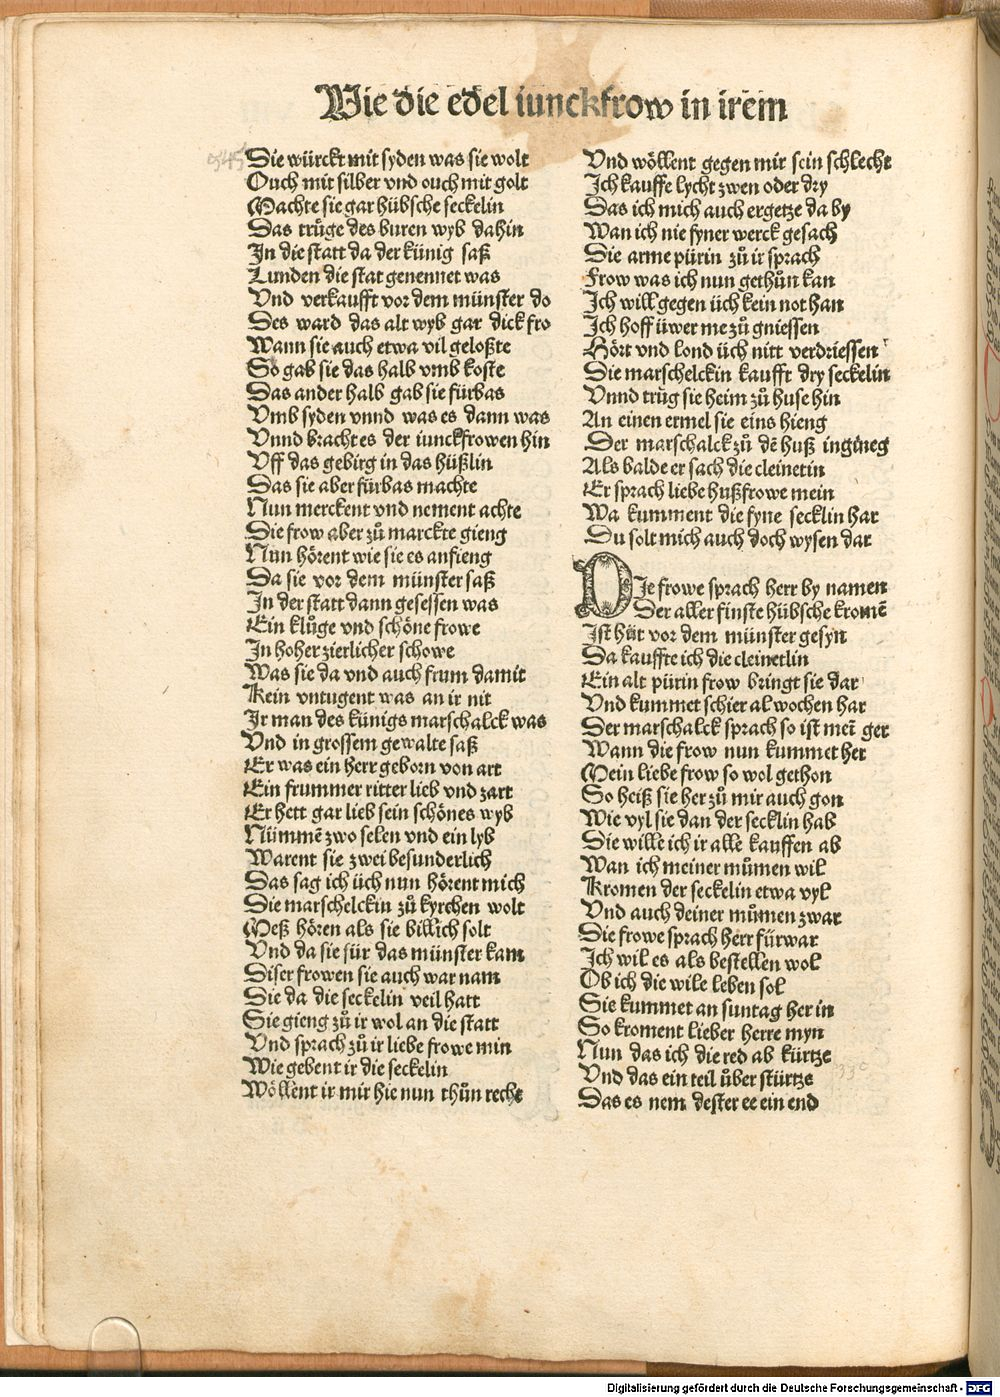 Wie die edel iunckfrow in irem
545
Sie würckt mit syden was sie wolt
Ouch mit silber vnd ouch mit golt
Machte sie gar hübsche seckelin
Das trůge des buren wyb dahin
In die statt da der künig saß
Lunden die stat genennet was
Vnd verkaufft vor dem münster do
Des ward das alt wyb gar dick fro
Wann sie auch etwa vil geloßte
So gab sie das halb vmb koste
Das ander halb gab sie fürbas
Vmb syden vnnd was es dann was
Vnnd bracht es der iunckfrowen hin
Vff das gebirg in das hüßlin
Das sie aber fürbas machte
Nun merckent vnd nement achte
Die frow aber zů marckte gieng
Nun hörent wie sie es anfieng
Da sie vor dem münster saß
In der statt dann gesessen was
Ein klůge vnd schöne frowe
In hoher zierlicher schowe
Was sie da vnd auch frum damit
Kein vntugent was an ir nit
Ir man des künigs marschalck was
Vnd in grossem gewalte saß
Er was ein herr geborn von art
Ein frummer ritter lieb vnd zart
Er hett gar lieb sein schönes wyb
Nümmē zwo selen vnd ein lyb
Warent sie zwei besunderlich
Das sag ich üch nun hörent mich
Die marschelckin zů kyrchen wolt
Meß hören als sie billich solt
Vnd da sie für das münster kam
Diser frowen sie auch war nam
Die da die seckelin veil hatt
Sie gieng zů ir wol an die statt
Vnd sprach zů ir liebe frowe min
Wie gebent ir die seckelin
Wöllent ir mir hie nun thůn recht
Vnd wöllent gegen mir sein schlecht
Ich kauffe lycht zwen oder dry
Das ich mich auch ergetze da by
Wan ich nie fyner werck gesach
Die arme pürin zů ir sprach
Frow was ich nun gethůn kan
Ich will gegen üch kein not han
Ich hoff üwer me zů gniessen
Hört vnd lond üch nitt verdriessen
Die marschelckin kaufft dry seckelin
Vnnd trůg sie heim zů huse hin
An einen ermel sie eins hieng
Der marschalck zů dē huß ingineg
Als balde er sach die cleinetin
Er sprach liebe hußfrowe mein
Wa kumment die fyne secklin har
Du solt mich auch doch wysen dar
DIe frowe sprach herr by namen
Der aller finste hübsche kromē
Ist hüt vor dem münster gesyn
Da kauffte ich die cleinetlin
Ein alt pürin frow bringt sie dar
Vnd kummet schier al wochen har
Der marschalck sprach so ist mei ger
Wann die frow nun kummet her
Mein liebe frow so wol gethon
So heiß sie her zů mir auch gon
Wie vyl sie dan der secklin hab
Die wille ich ir alle kauffen ab
Wan ich meiner můmen wil
Kromen der seckelin etwa vyl
Vnd auch deiner můmen zwar
Die frowe sprach herr fürwar
Ich wil es als bestellen wol
Ob ich die wile leben sol
Sie kummet an suntag her in
So kroment lieber herre myn
Nun das ich die red ab kürtze
Vnd das ein teil über stürtze
Das es nem dester ee ein end
Digitalisierung gefördert durch die Deutsche Forschungsgemeinschaft - DFG